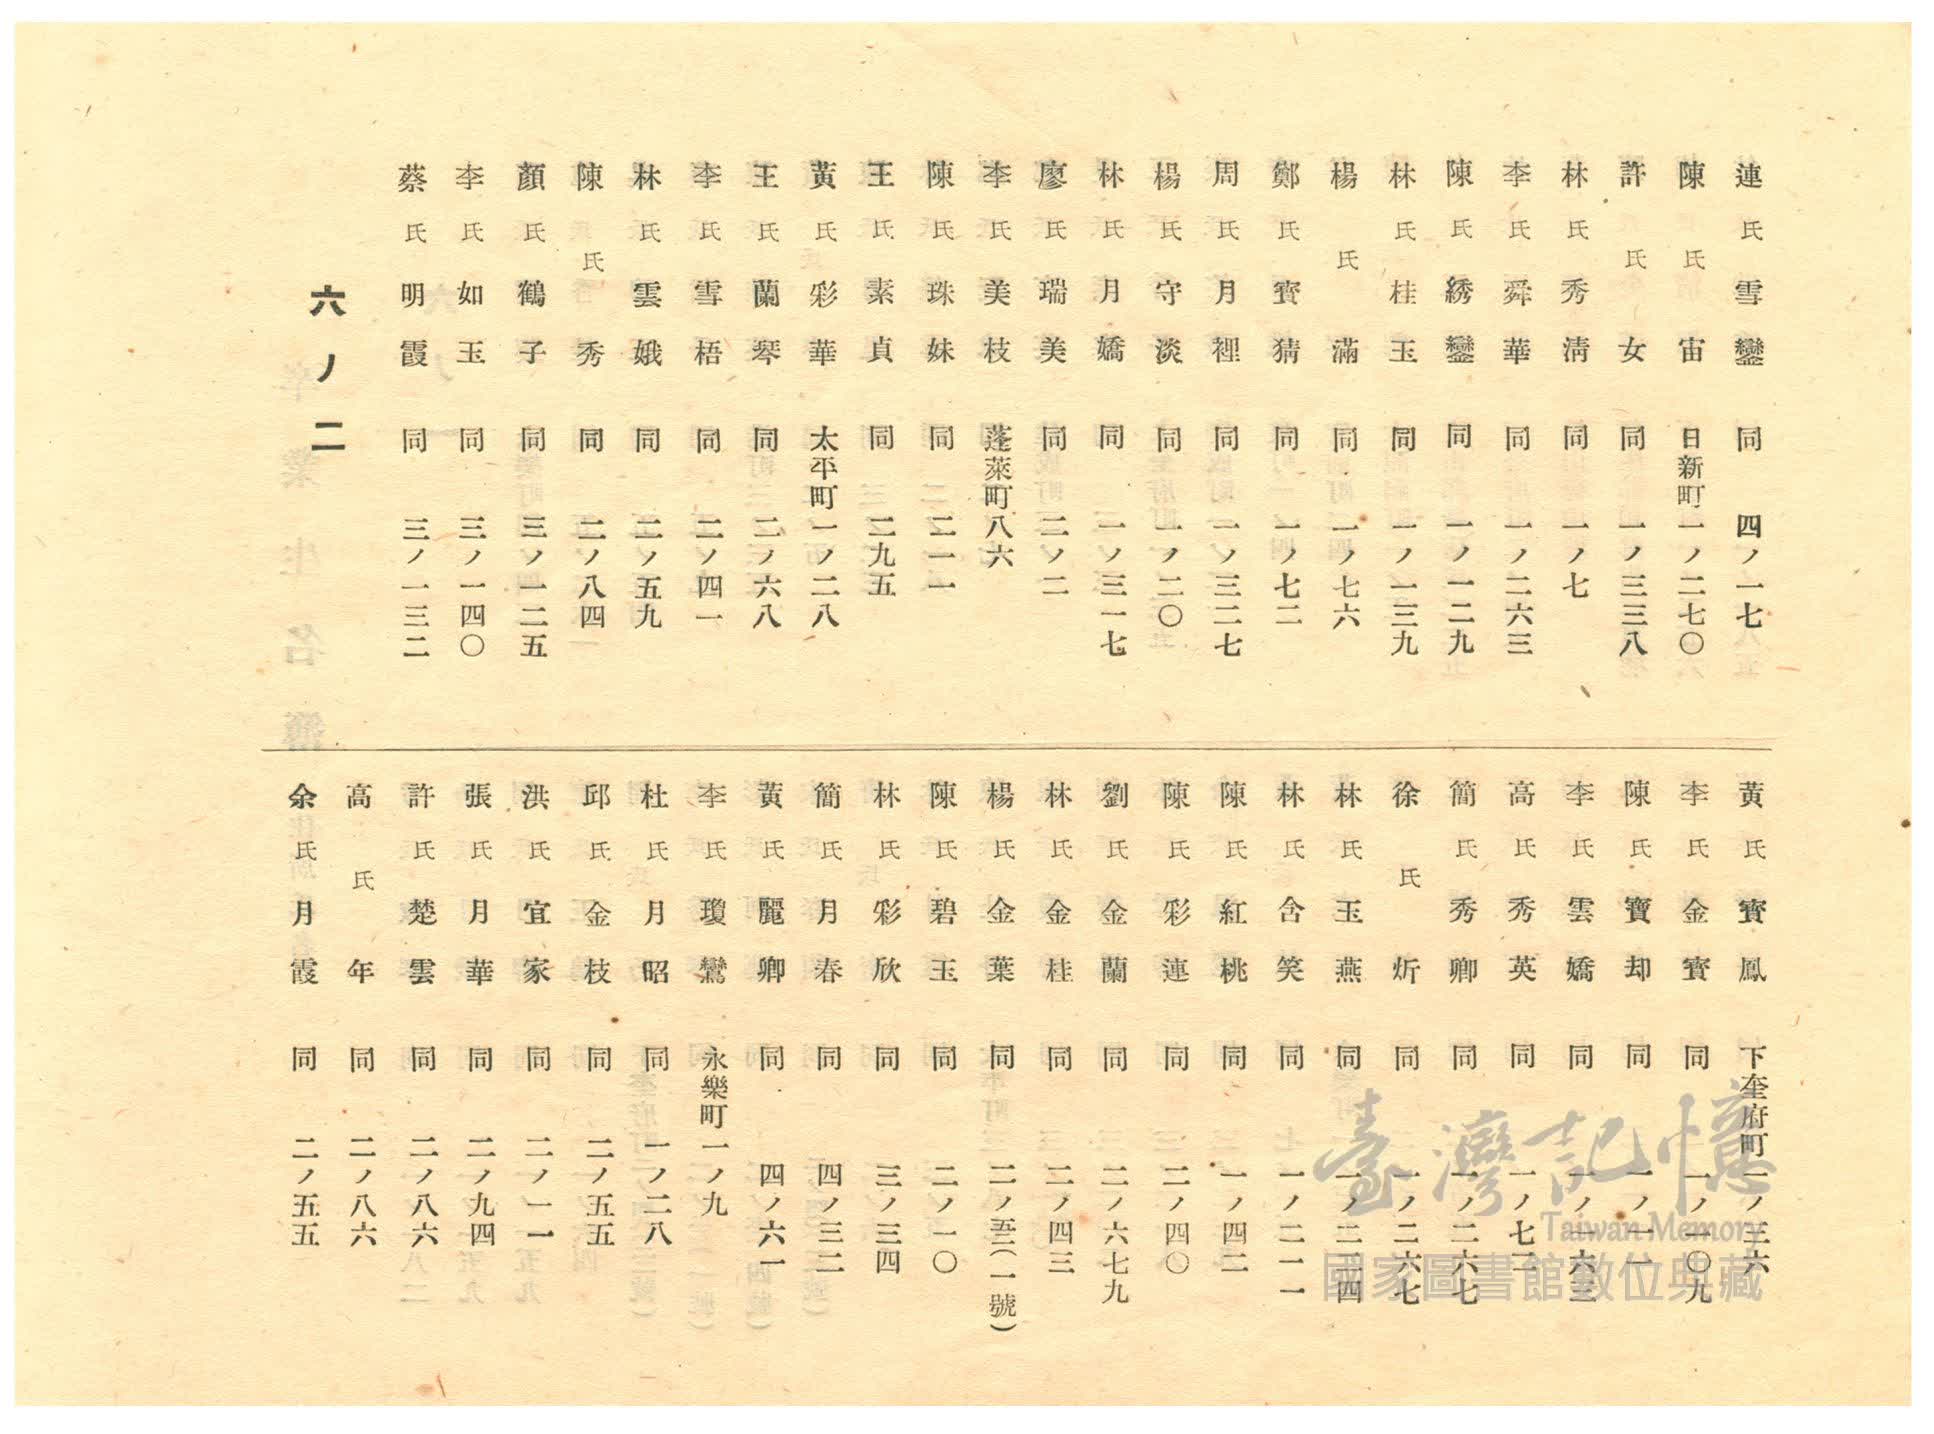 連氏雪鑾 同 四ノ一七
陳氏宙 日新町一ノ二七〇
許氏女 同 一ノ三三八
林氏秀清 同 一ノ七
李氏舜華 同 一ノ二六三
陳氏綉鑾 同 一ノ一二九
林氏桂玉 同 一ノ一三九
楊氏滿 同 一ノ七六
鄭氏寶猜 同 一ノ七二
周氏月裡 同 一ノ三二七
楊氏守淡 同 一ノ二〇
林氏月嬌 同 一ノ三一七
廖氏瑞美 同 二ノ二
李氏美枝 蓬萊町八六
陳氏珠妹 同 二一一
王氏素貞 同 二九五
黃氏彩華 太平町一ノ二八
王氏蘭琴 同 二ノ六八
李氏雪梧 同 二ノ四一
林氏雲娥 同 二ノ五九
陳氏秀 同 二ノ八四
顏氏鶴子 同 三ノ一二五
李氏如玉 同 三ノ一四〇
蔡氏明霞 同 三ノ一三二
六ノ二
黃氏寶鳳 下奎府町一ノ三六
李氏金寶 同 一ノ一〇九
陳氏寶却 同 一ノ一一
李氏雲嬌 同 一ノ一六三
高氏秀英 同 一ノ七二
簡氏秀卿 同 一ノ二六七
徐氏炘 同 一ノ二六七
林氏玉燕 同 一ノ二二四
林氏含笑 同 一ノ二一一
陳氏紅桃 同 一ノ四二
陳氏彩連 同 二ノ四〇
劉氏金蘭 同 二ノ六七九
林氏金桂 同 二ノ四三
楊氏金葉 同 二ノ五(一號)
陳氏碧玉 同 二ノ一〇
林氏彩欣 同 三ノ三四
簡氏月春 同 四ノ三二
黃氏麗卿 同 四ノ六一
李氏瓊鸞 永樂町一ノ九
杜氏月昭 同 一ノ二八
邱氏金枝 同 二ノ五五
洪氏宜家 同 二ノ一一
張氏月華 同 二ノ九四
許氏楚雲 同 二ノ八六
高氏年 同 二ノ八六
余氏月霞 同 二ノ五五
臺灣記憶
Taiwan Memory
國家圖書館數位典藏